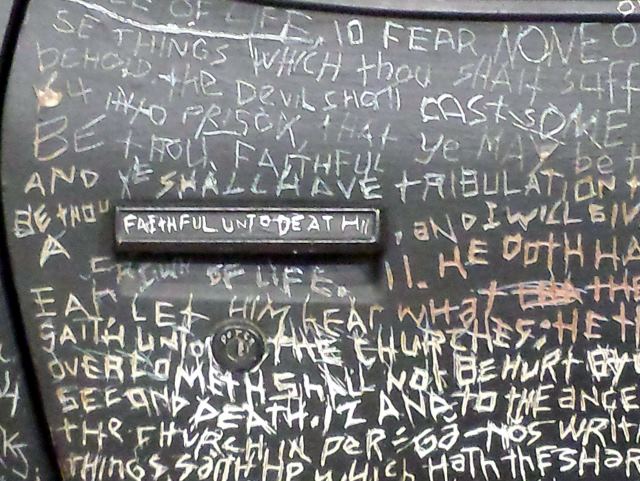 EE OF LIFE, 10 FEAR NONE O
SE THINGS WHICH thou SHAlt SUFF
behold the Devil shall CAST SOME
INTO PRISON that ye MAY be t
BE thou FAITHFUL
AND YE SHALL HAVE tRIBULATION
BE thou FAItHFUL UNTO DEATH
, aND I WILL GIV
A CROWN OF LIFE. 11. HE DOTH HA
EAR, LET HIM HEAR What the
SAITH UNTO THE CHURCHES; HE th
OVERCOMETH SHALL NOT BE HURT BY
SECOND DEATH. 12 AND TO THE ANGE
the CHURCH IN PERGAMOS WRIT
THINGS SAITH HE which HATH thE SHAR